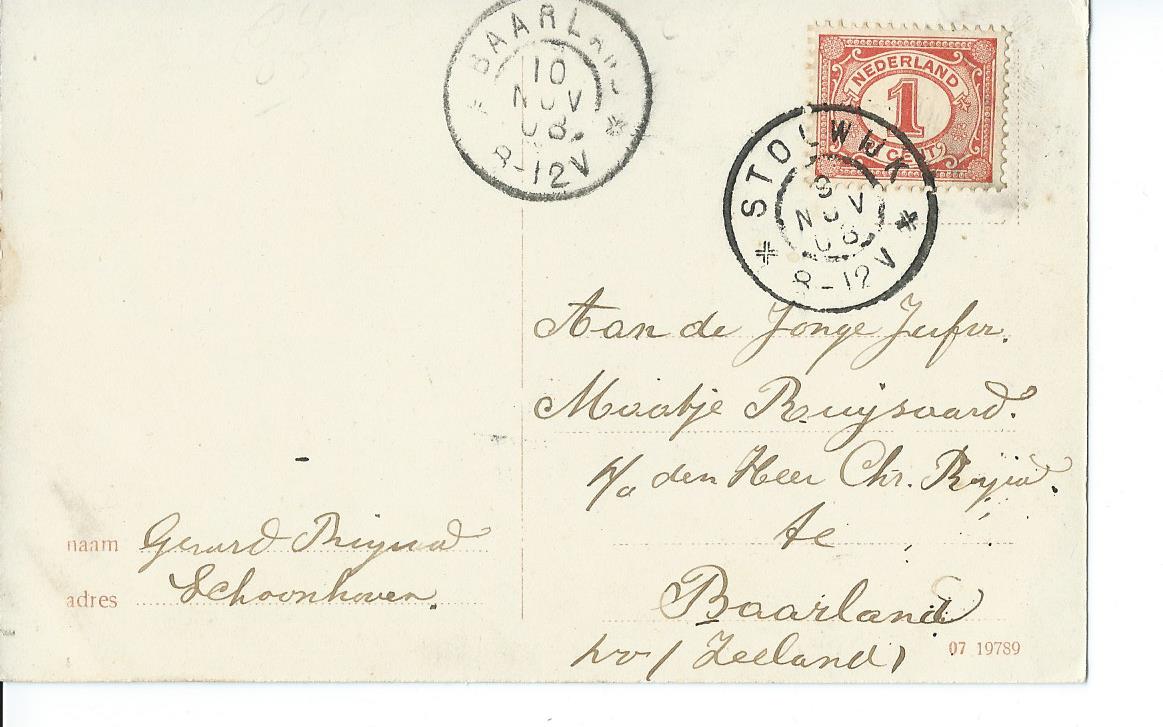 BAARLAND
10
NOV
08
8-12V
NEDERLAND
1
CENT
STOLWIJK
9
NOV
08
8-12V
Aan de Jonge Jufvr.
Maatje Ruijsaard.
p/a den Heer Chr.
te
Baarland
Zeeland
naam Gerard
adres Schoonhoven.
07 19789